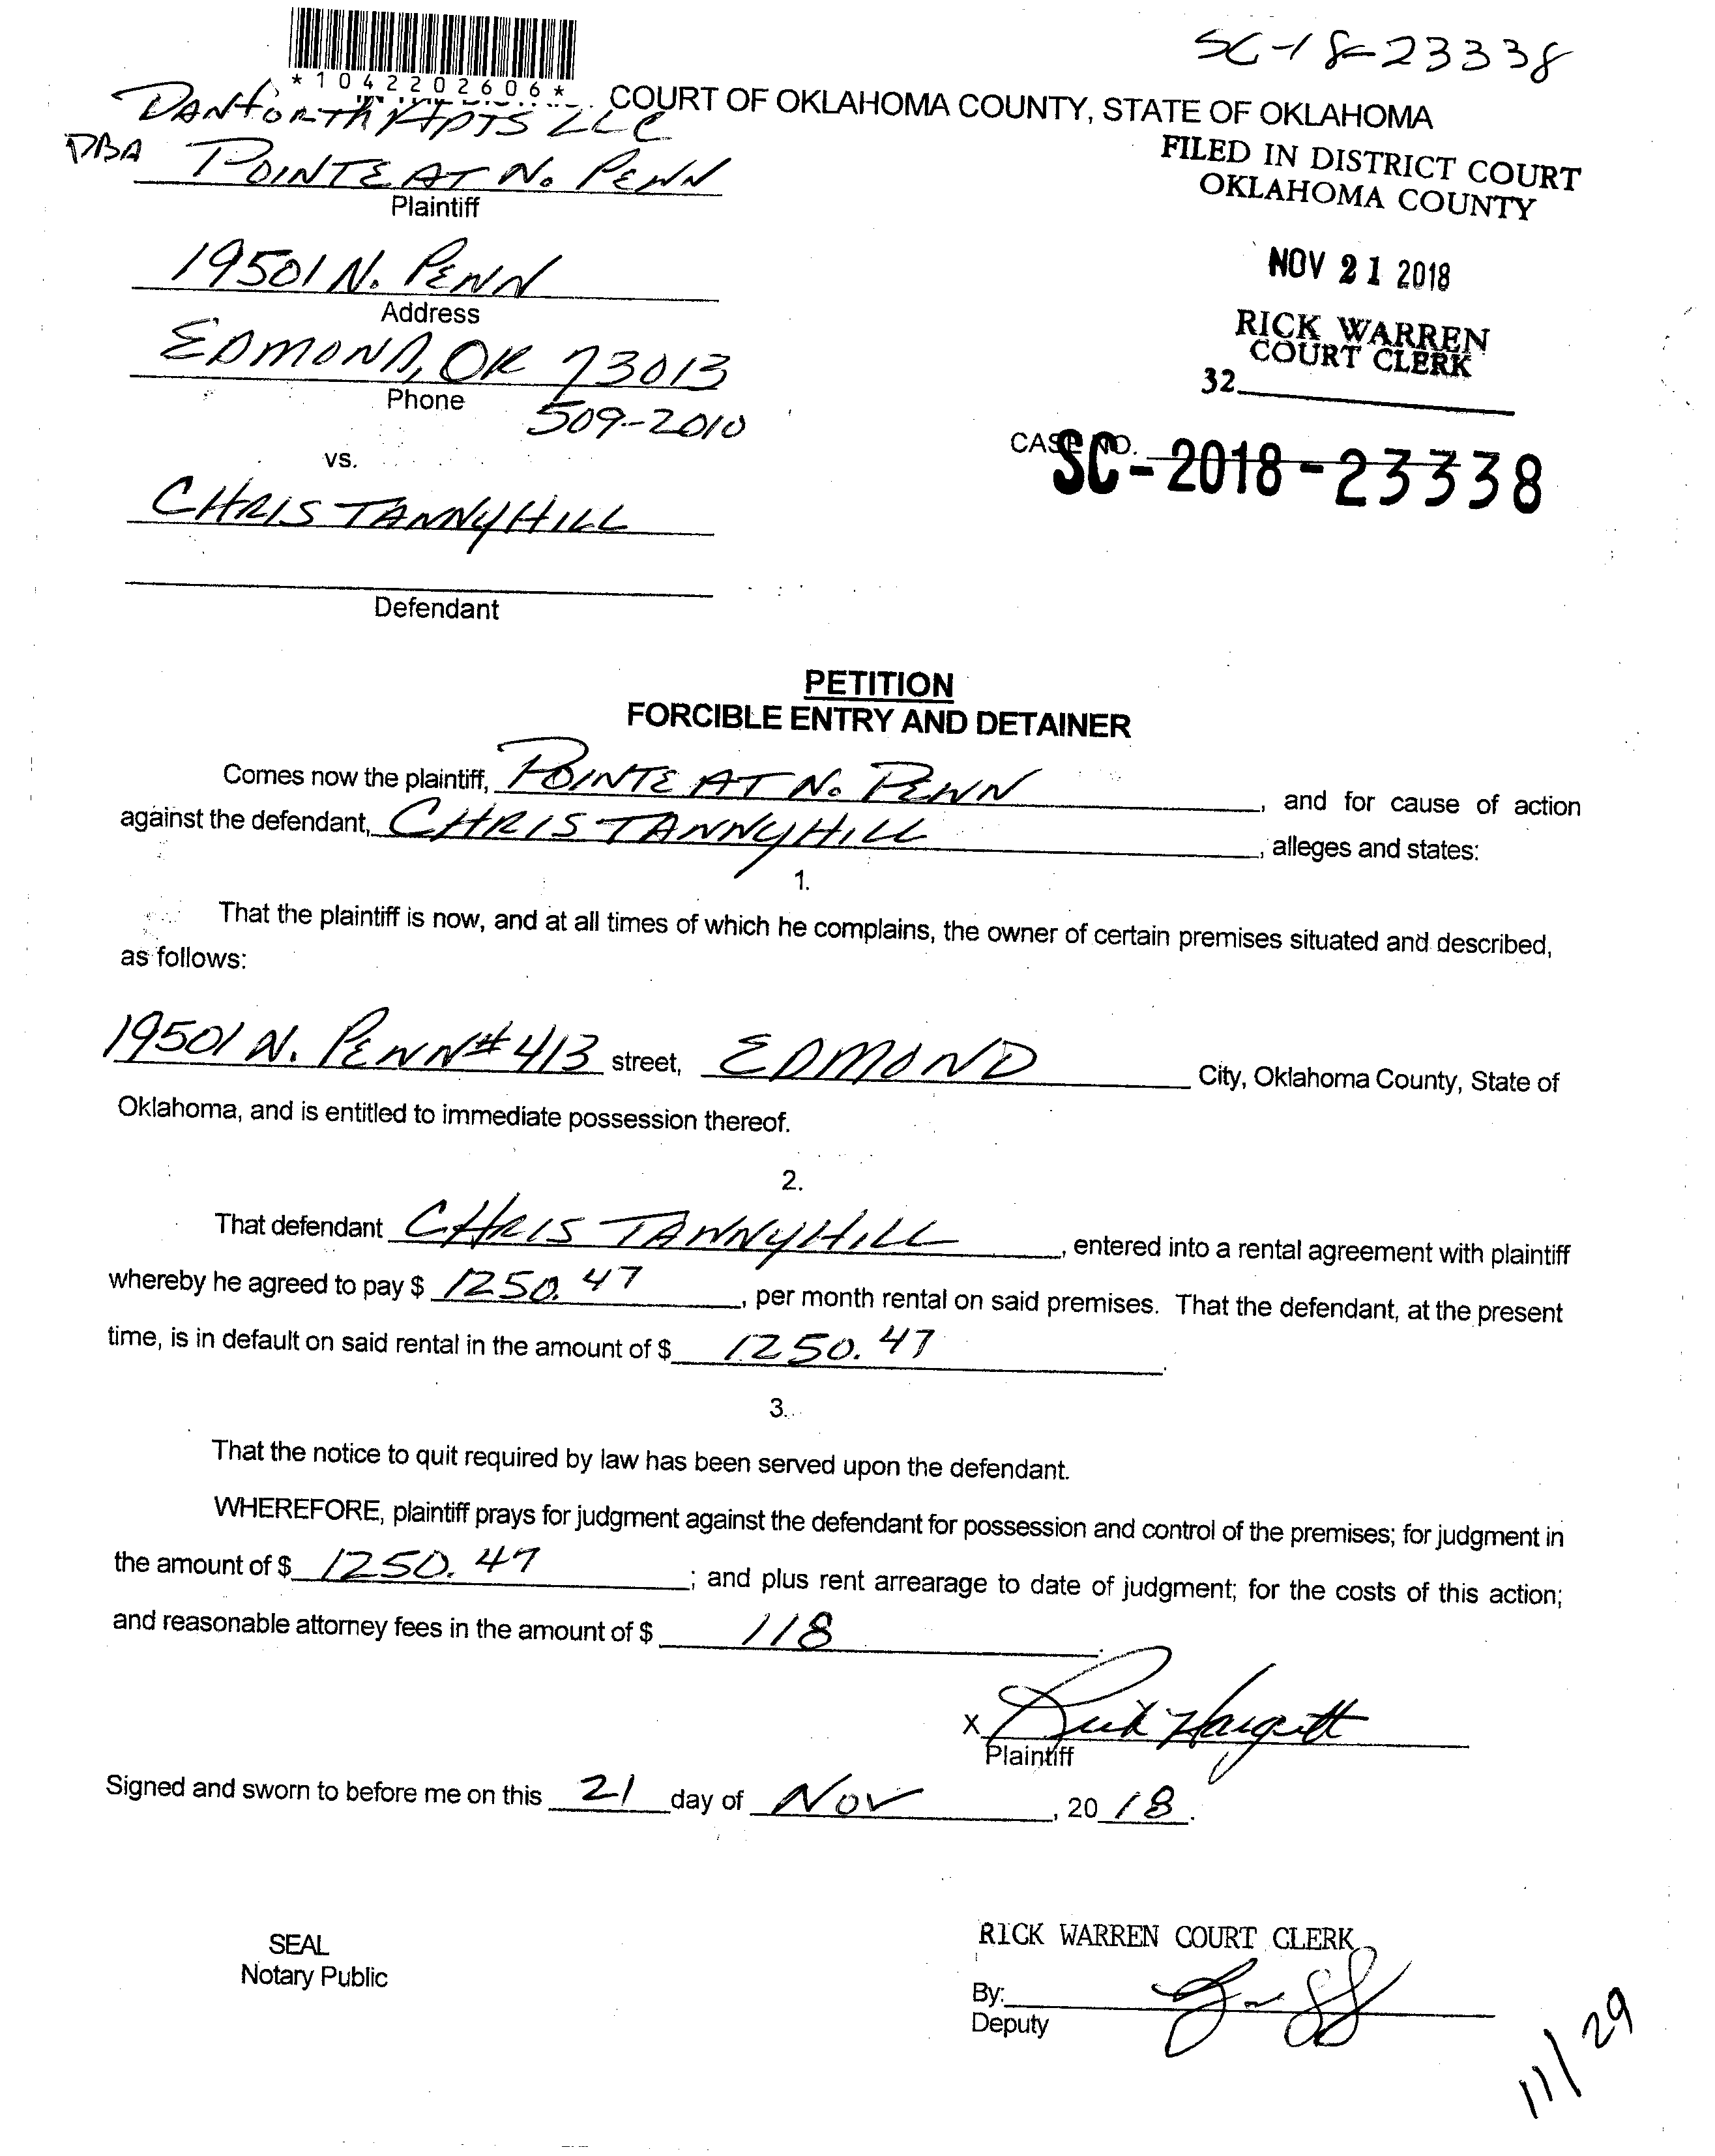 SC-18-23338
*1042202606*
COURT OF OKLAHOMA COUNTY, STATE OF OKLAHOMA
DANFORTH APTS LLC
DBA POINTE AT N. PENN
Plaintiff
FILED IN DISTRICT COURT
OKLAHOMA COUNTY
19501 N. PENN
Address
NOV 21 2018
EDMOND, OK 73013
Phone 509-2010
RICK WARREN
COURT CLERK
32
vs.
CASE NO. SC-2018-23338
CHRIS TANNYHILL
Defendant
PETITION
FORCIBLE ENTRY AND DETAINER
Comes now the plaintiff, POINTE AT N. PENN, and for cause of action
against the defendant, CHRIS TANNYHILL, alleges and states:
1.
That the plaintiff is now, and at all times of which he complains, the owner of certain premises situated and described,
as follows:
19501 N. PENN #413 street, EDMOND City, Oklahoma County, State of
Oklahoma, and is entitled to immediate possession thereof.
2.
That defendant CHRIS TANNYHILL, entered into a rental agreement with plaintiff
whereby he agreed to pay $ 1250.47, per month rental on said premises. That the defendant, at the present
time, is in default on said rental in the amount of $ 1250.47.
3.
That the notice to quit required by law has been served upon the defendant.
WHEREFORE, plaintiff prays for judgment against the defendant for possession and control of the premises; for judgment in
the amount of $ 1250.47; and plus rent arrearage to date of judgment; for the costs of this action;
and reasonable attorney fees in the amount of $ 118.
X Rick Hargett
Plaintiff
Signed and sworn to before me on this 21 day of NOV, 20 18.
SEAL
Notary Public
RICK WARREN COURT CLERK
By:
Deputy
11/29